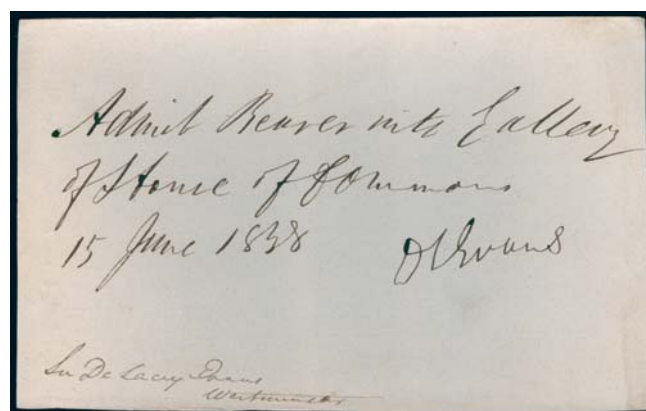 Admit Bearer into Gallery
of House of Commons
15 June 1838 DL Evans
Sir De Lacy Evans
Westminster